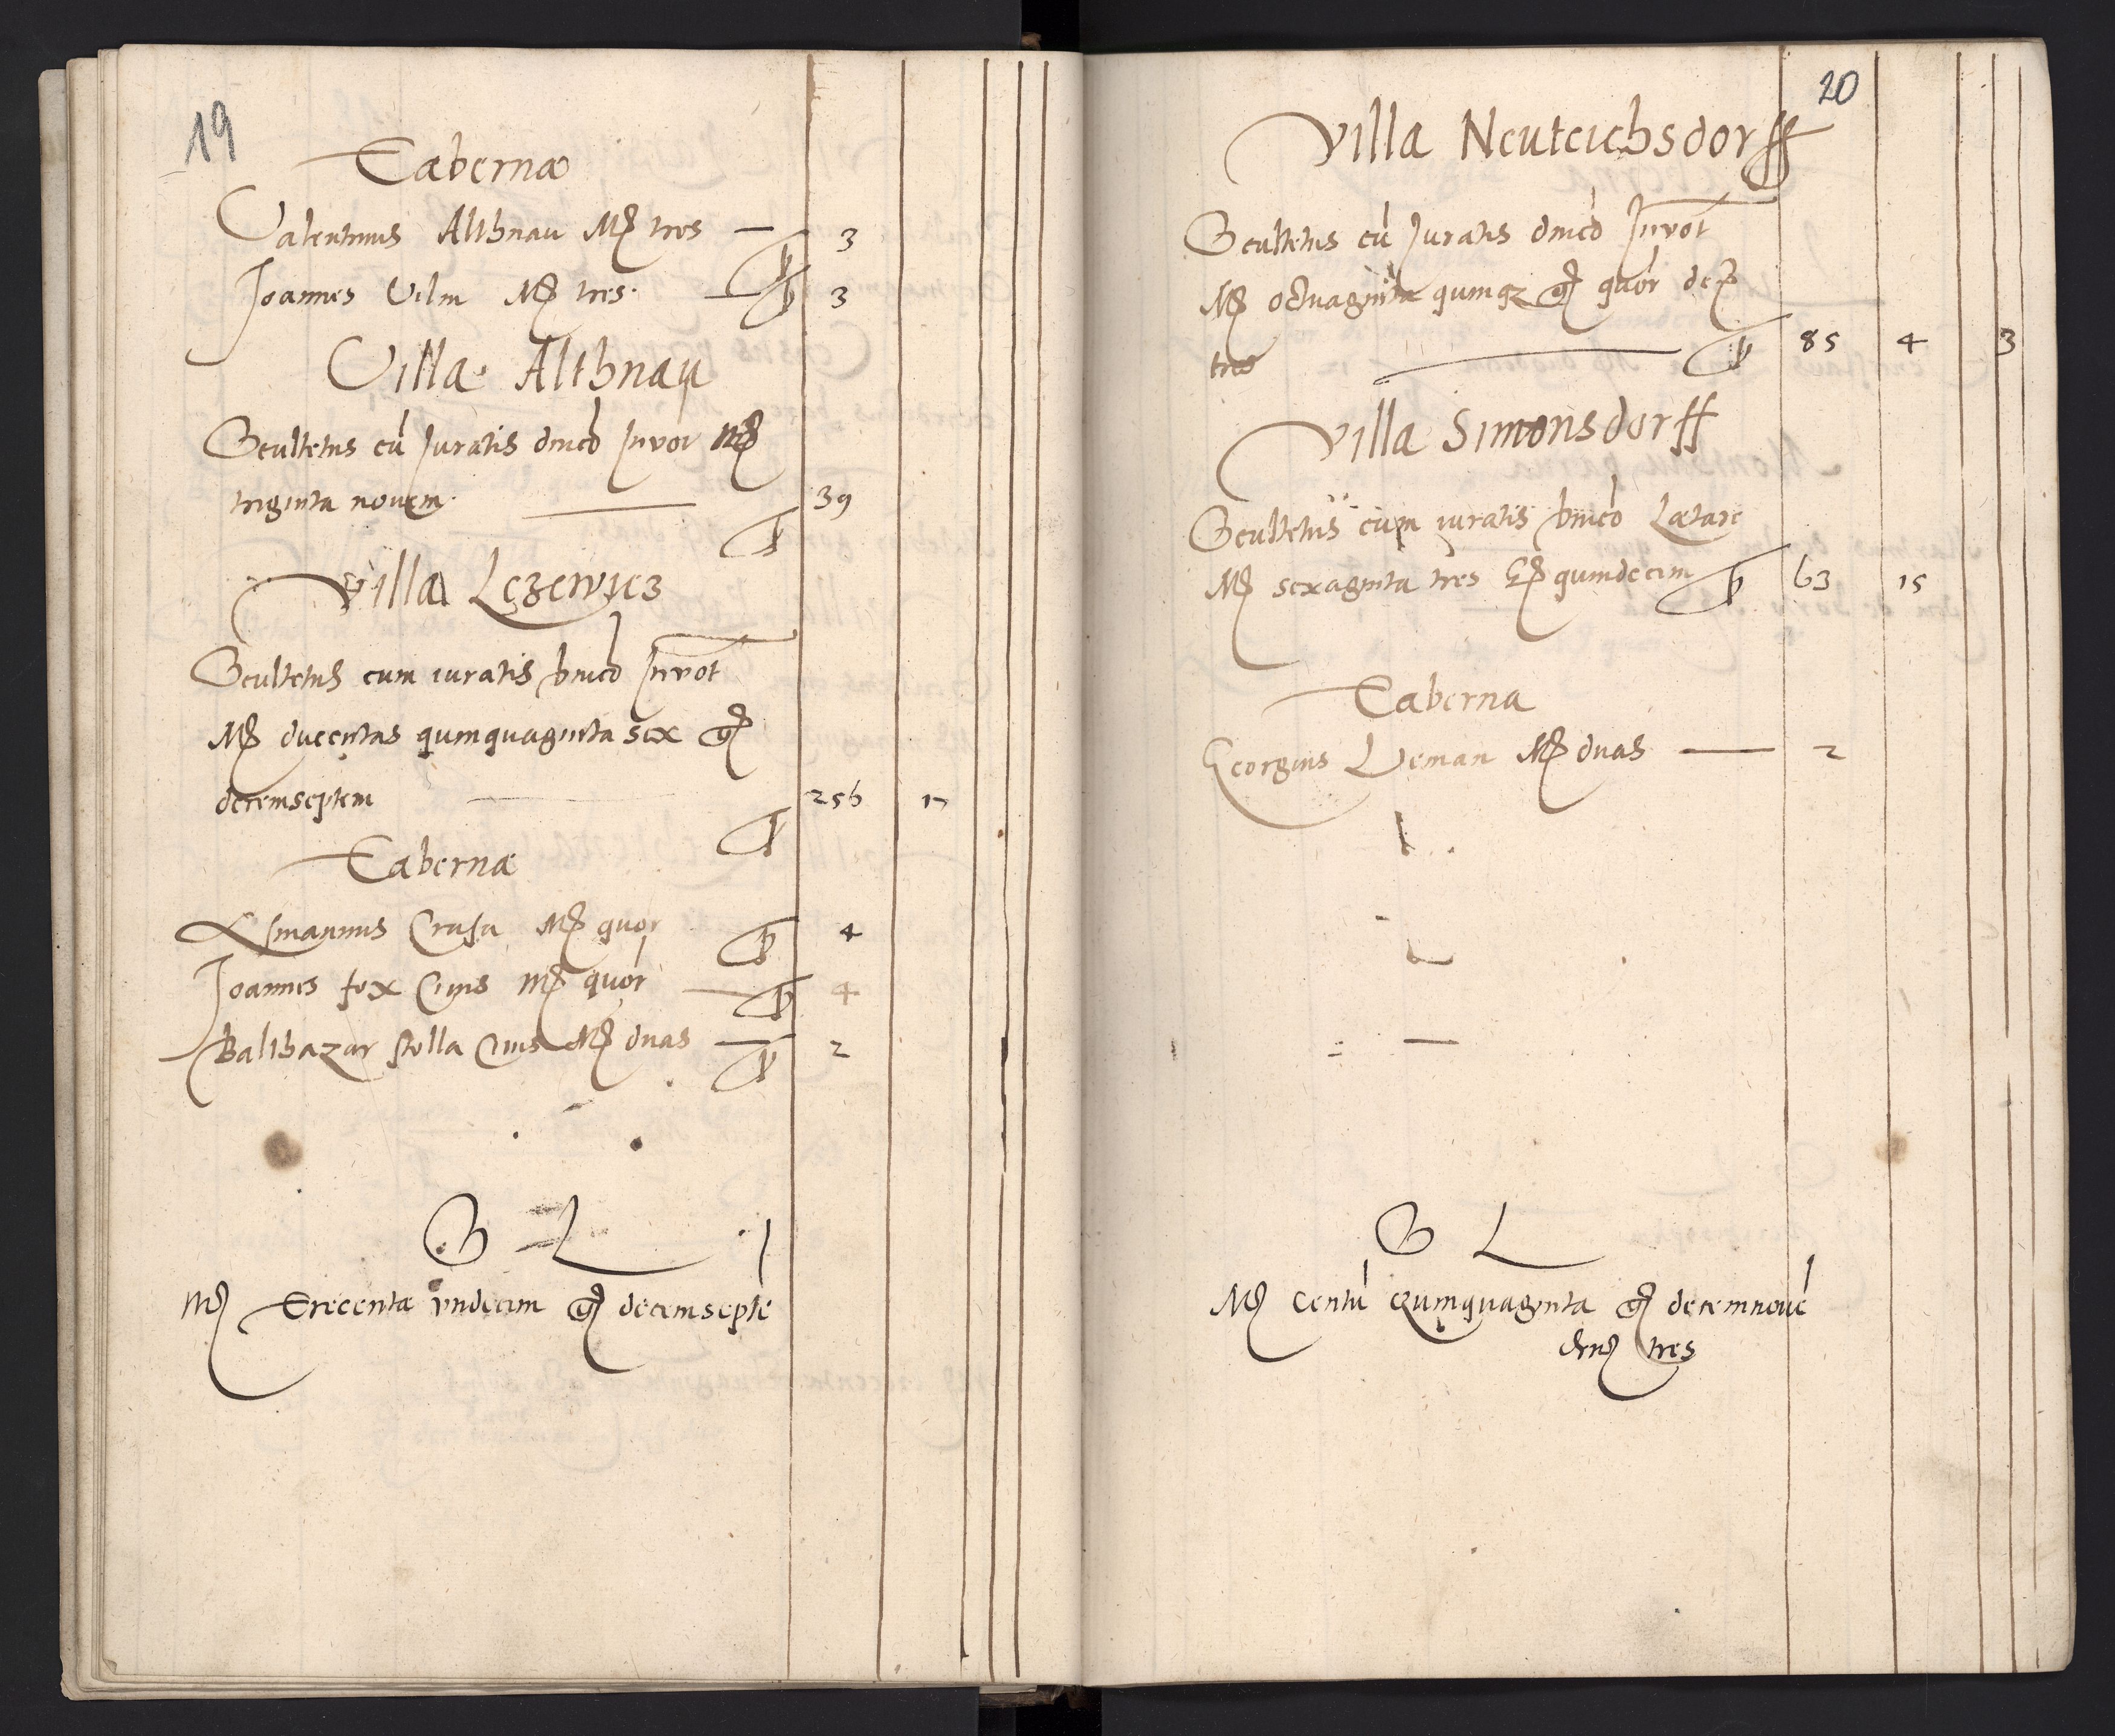 19
Tabernæ
Valentinus Althnau Mr tres — 3
Joannes Vilm Mr tres. — 3
Villa Althnau
Scultetus cū Juratis dnicō Invot Mr
triginta novem. — 39
Villa Lezewicz
Scultetus cum iuratis dnicō Invot
Mr ducentas quinquaginta sex gr
decemseptem — 256 17
Tabernæ
Mr quor 4
Joannes fox Civis Mr quor — 4
Balthazar stolla Civis Mr duas — 2
S L
Mr Trecenta vndecim gr decemseptē
20
Villa Neuteichsdorff
Scultetus cū Juratis dnicō Invot
Mr octuaginta quinqz gr quor den
tres — 85 4 3
Villa Simonsdorff
Scultetus cum iuratis dnicō Lætare
Mr sexaginta tres Gr quindecim 63 15
Taberna
Georgius Leman Mr duas — 2
S L
Mr Centū Quinquaginta gr decemnouē
den tres